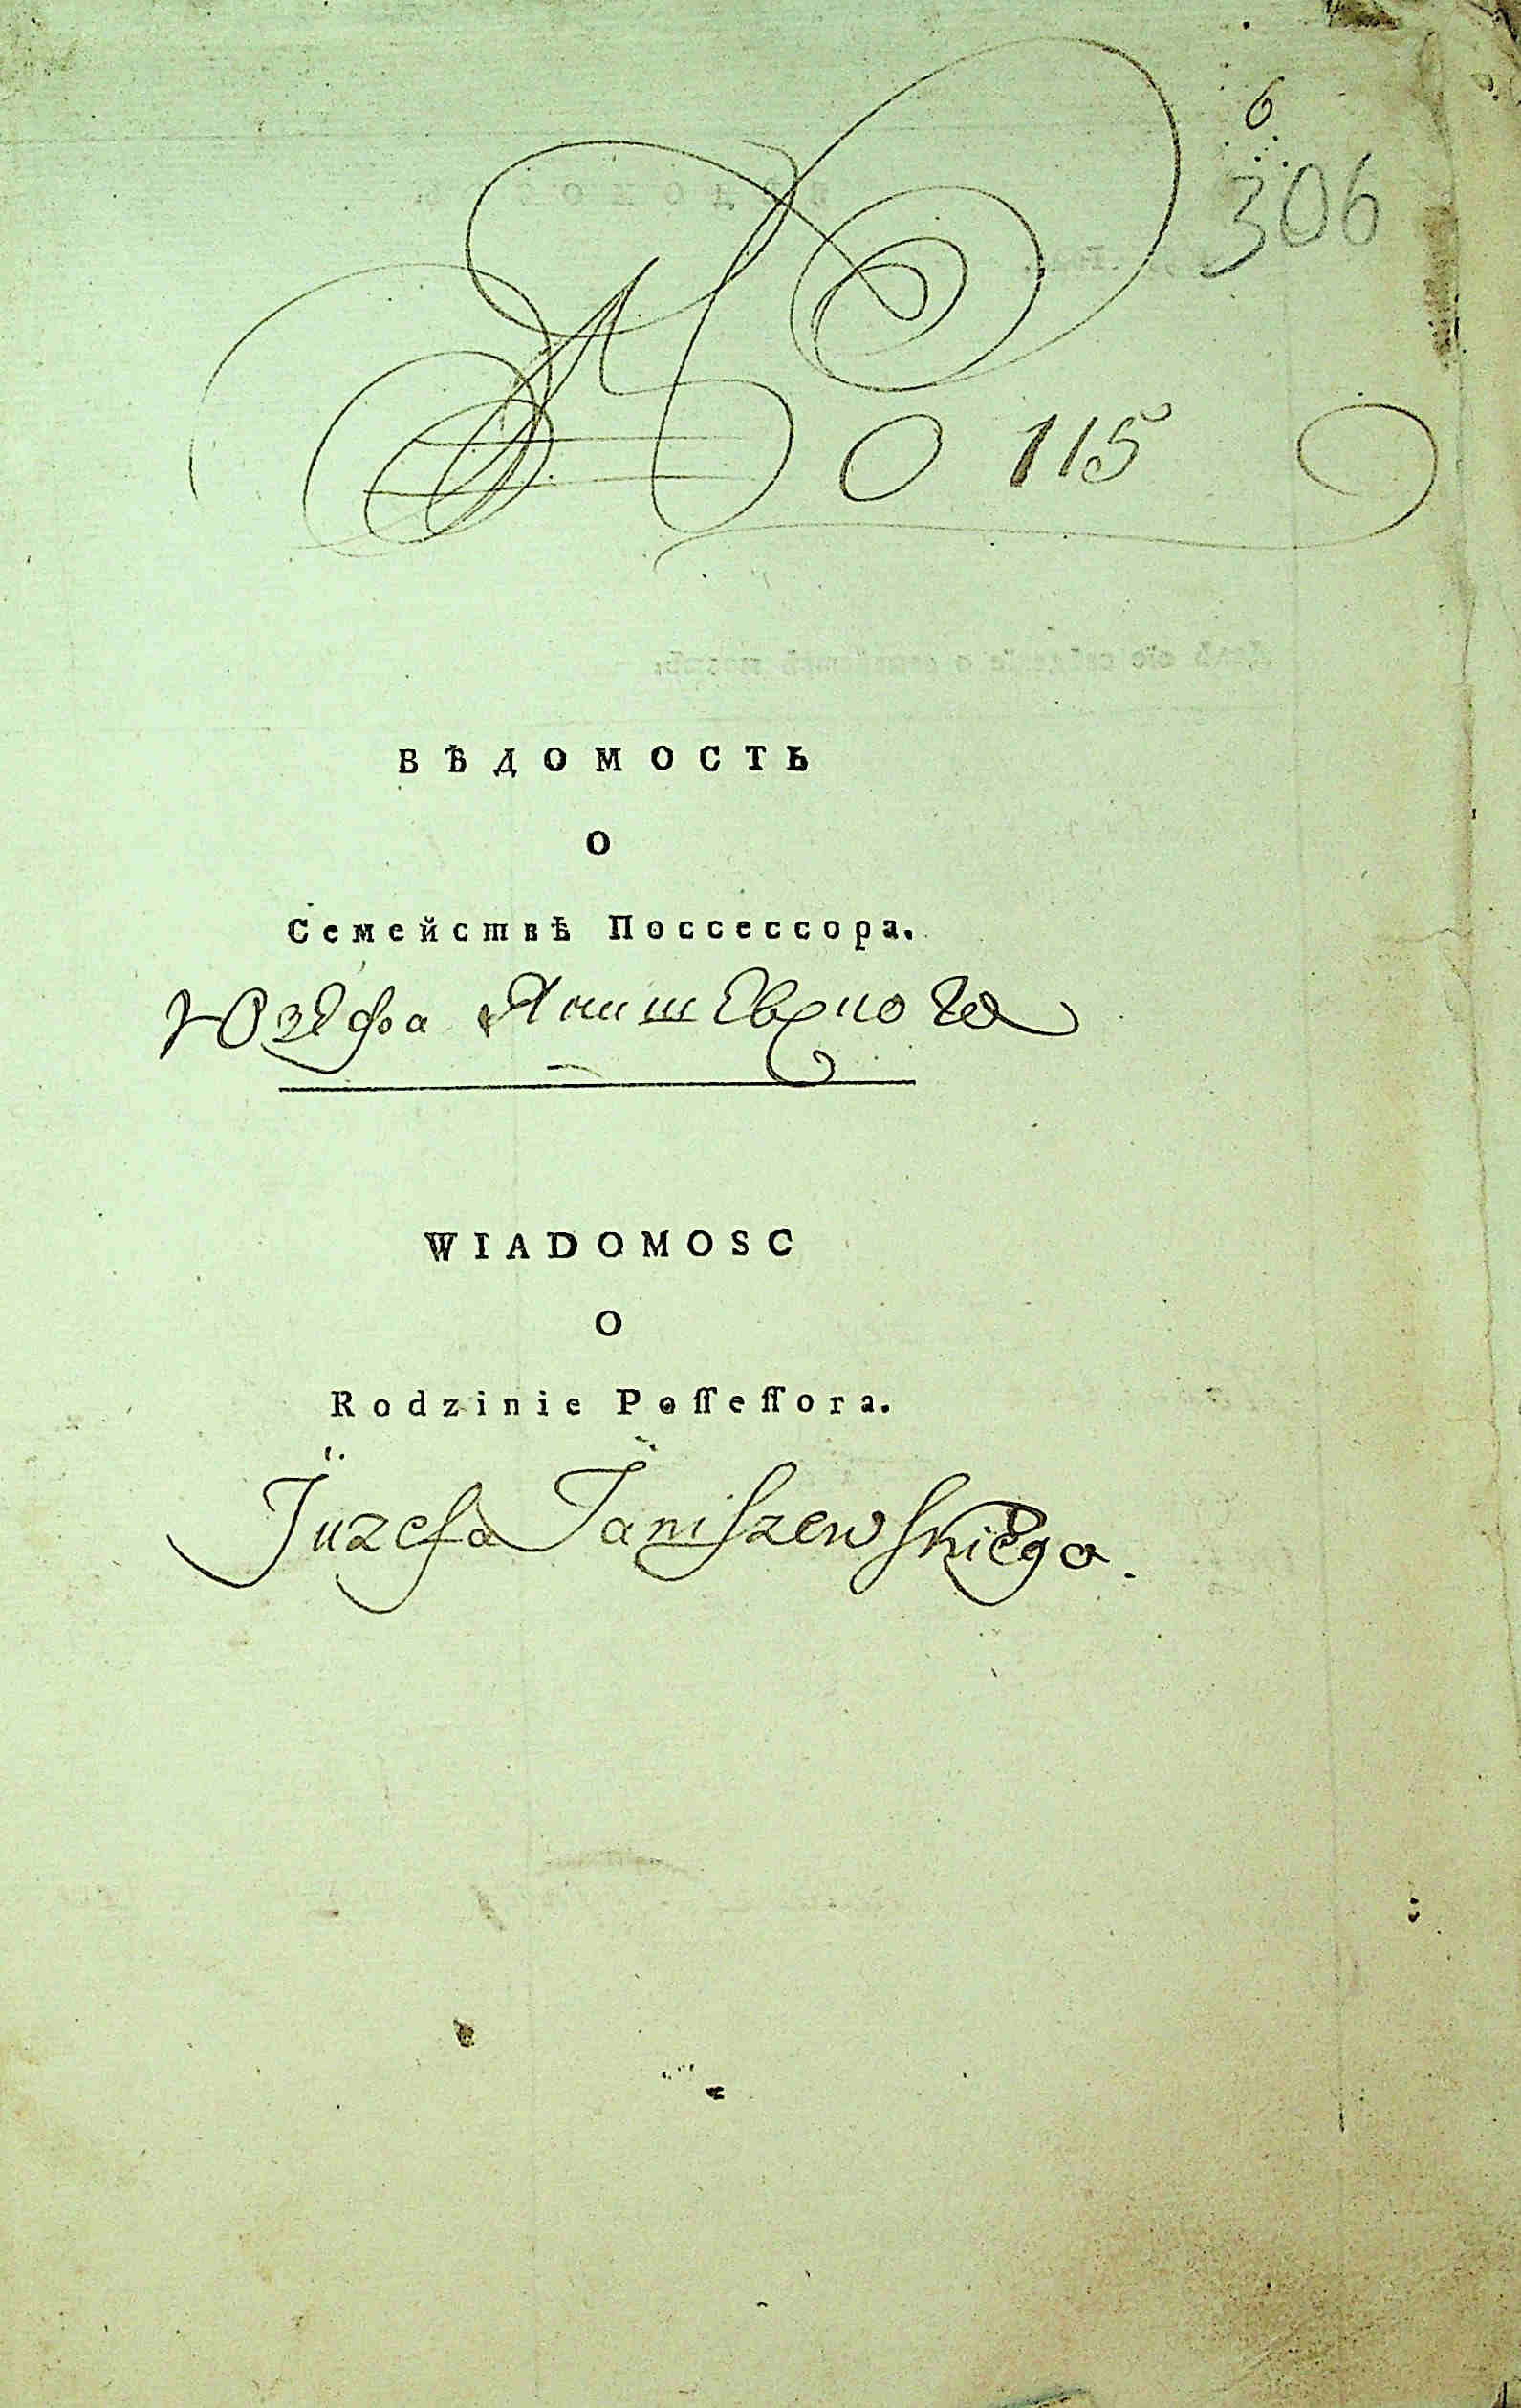 6
306
No 115
ВѢДОМОСТЬ
О
Семействѣ Поссессора.
Юзефа Янишевскога
WIADOMOSC
O
Rodzinie Poſſeſſora.
Juzefa Janiszewskiego.